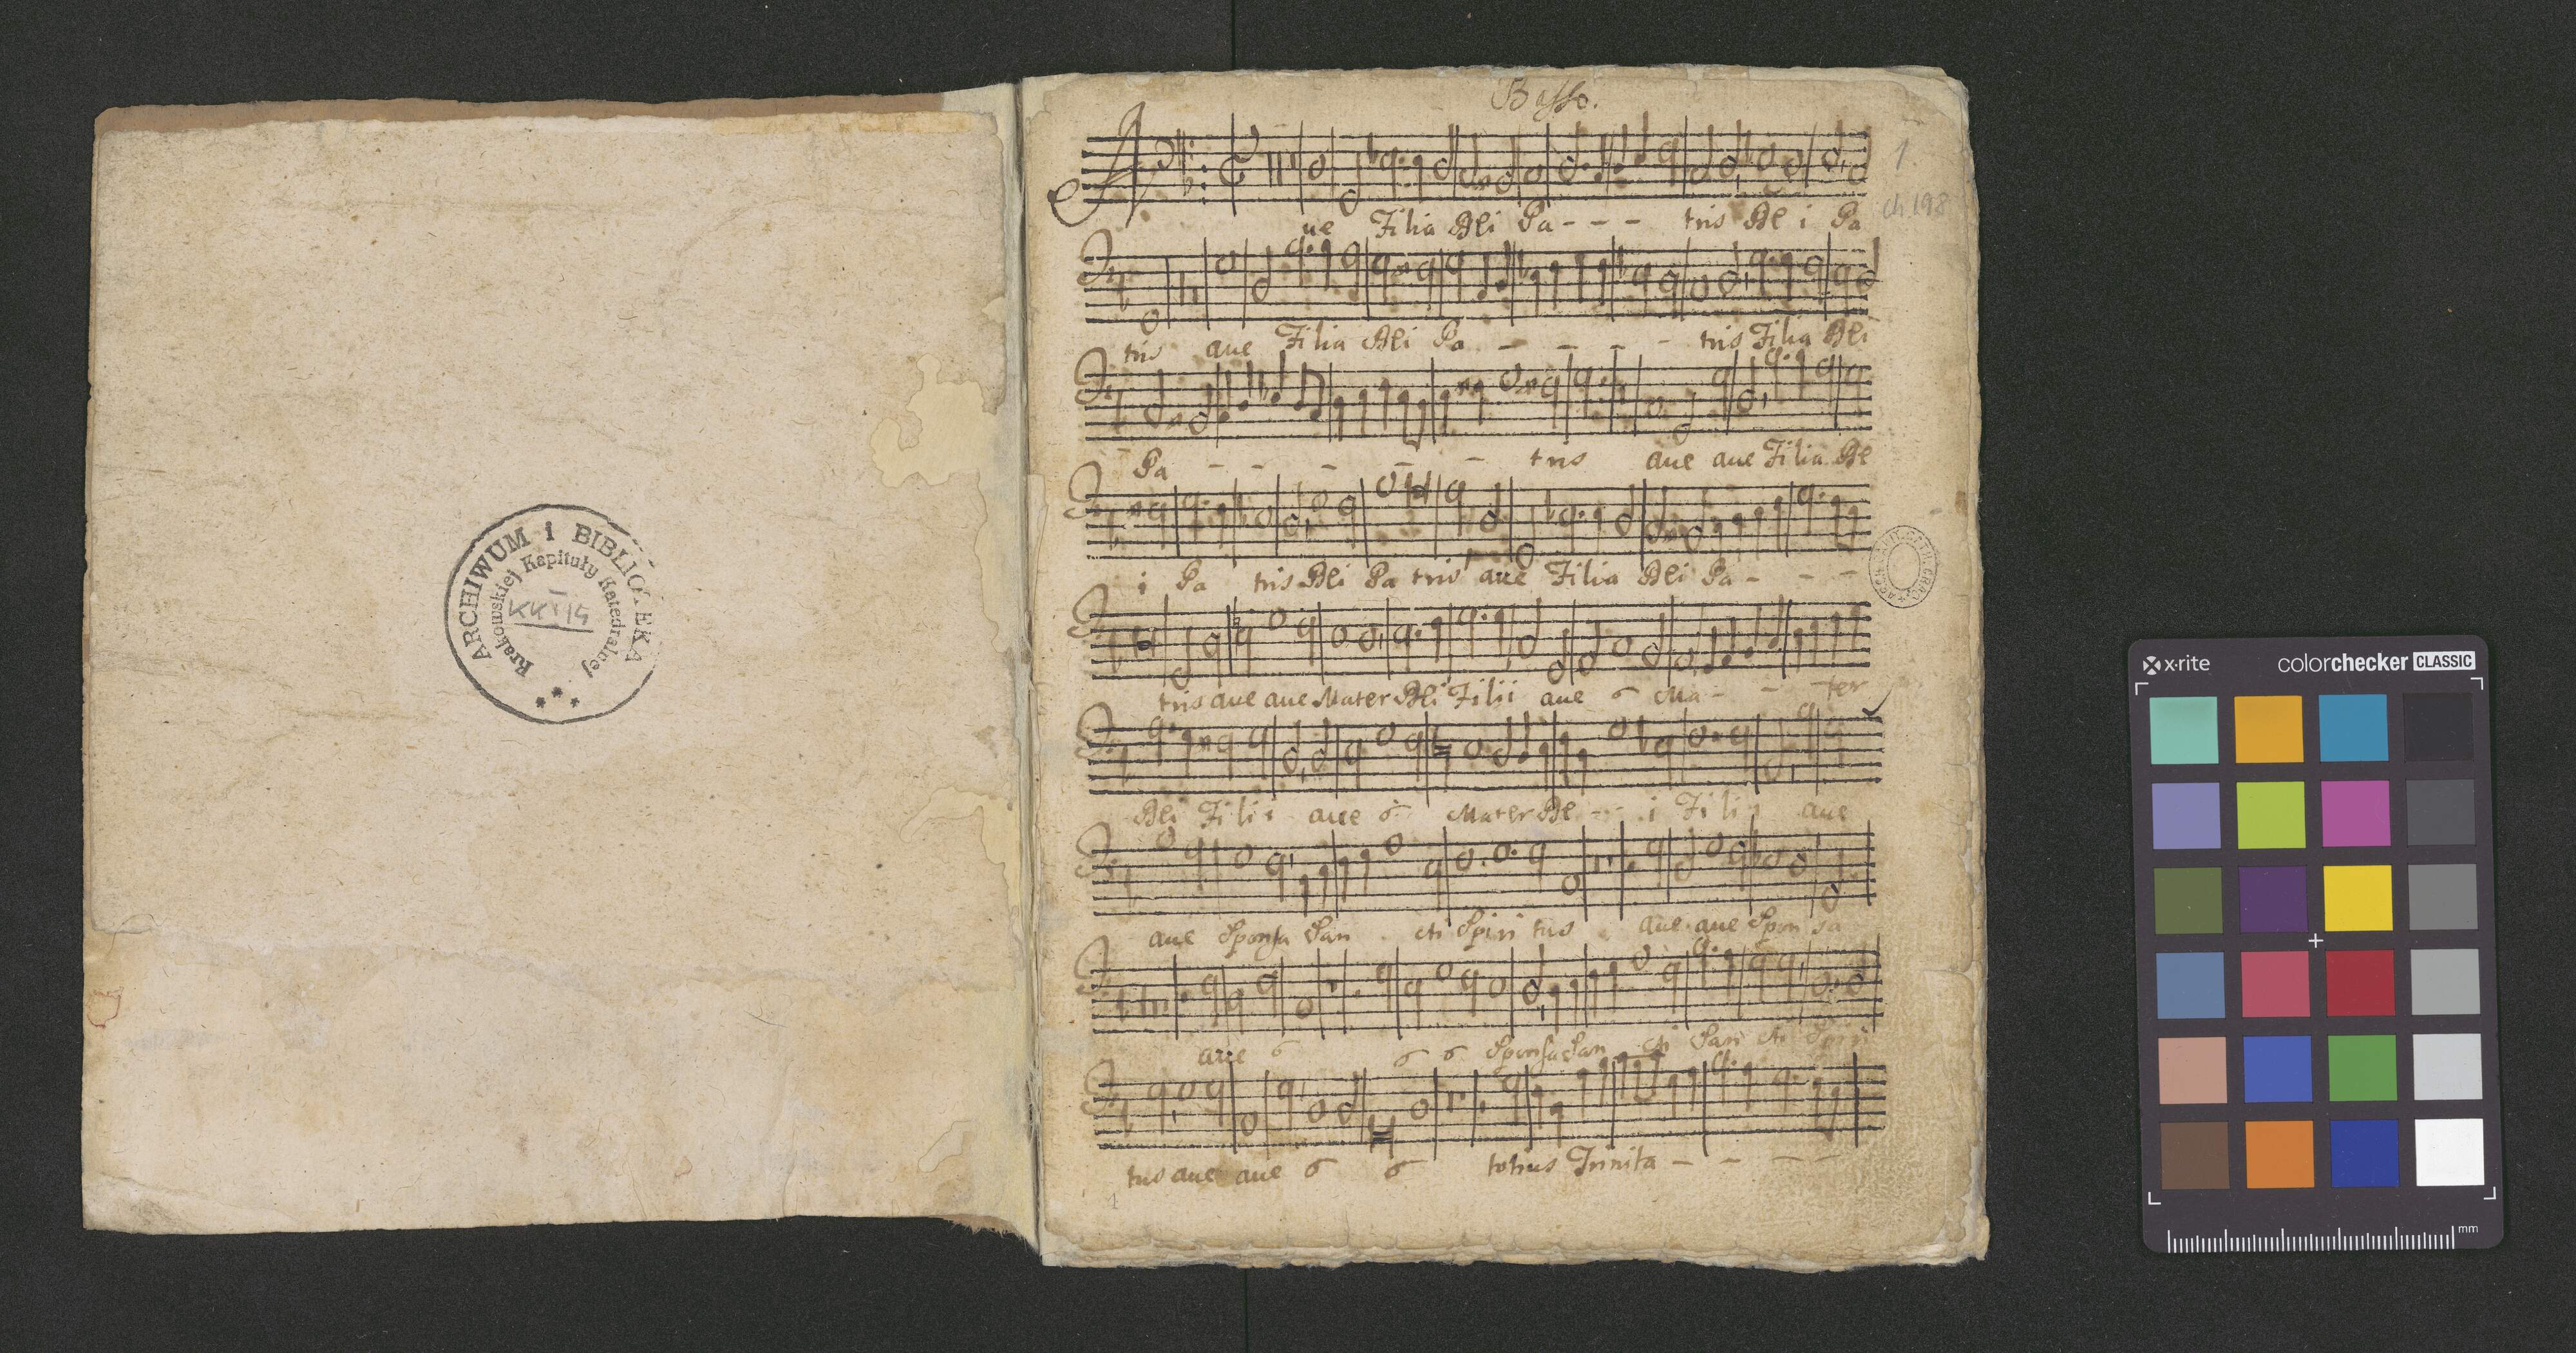 ARCHIWUM i BIBLIOTEKA
Krakowskiej Kapituły Katedralnej
KK I 14
Basso.
1.
A
ue Filia Dei Pa - - - tris De i Pa
ch. 198
tris aue Filia Dei Pa - - - - tris Filia Dei
Pa - - - - - tris aue aue Filia De
i Pa tris Dei Pa tris aue Filia Dei Pa - - -
tris aue aue Mater Dei Filii aue Ma - - - ter
Dei Filii aue Mater De - - i Filij aue
aue Sponsa San cti Spiri tus aue aue Spon sa
aue Sponsa San cti San cti Spiri
tus aue aue totius Trinita - - - -
1
x·rite colorchecker CLASSIC
mm